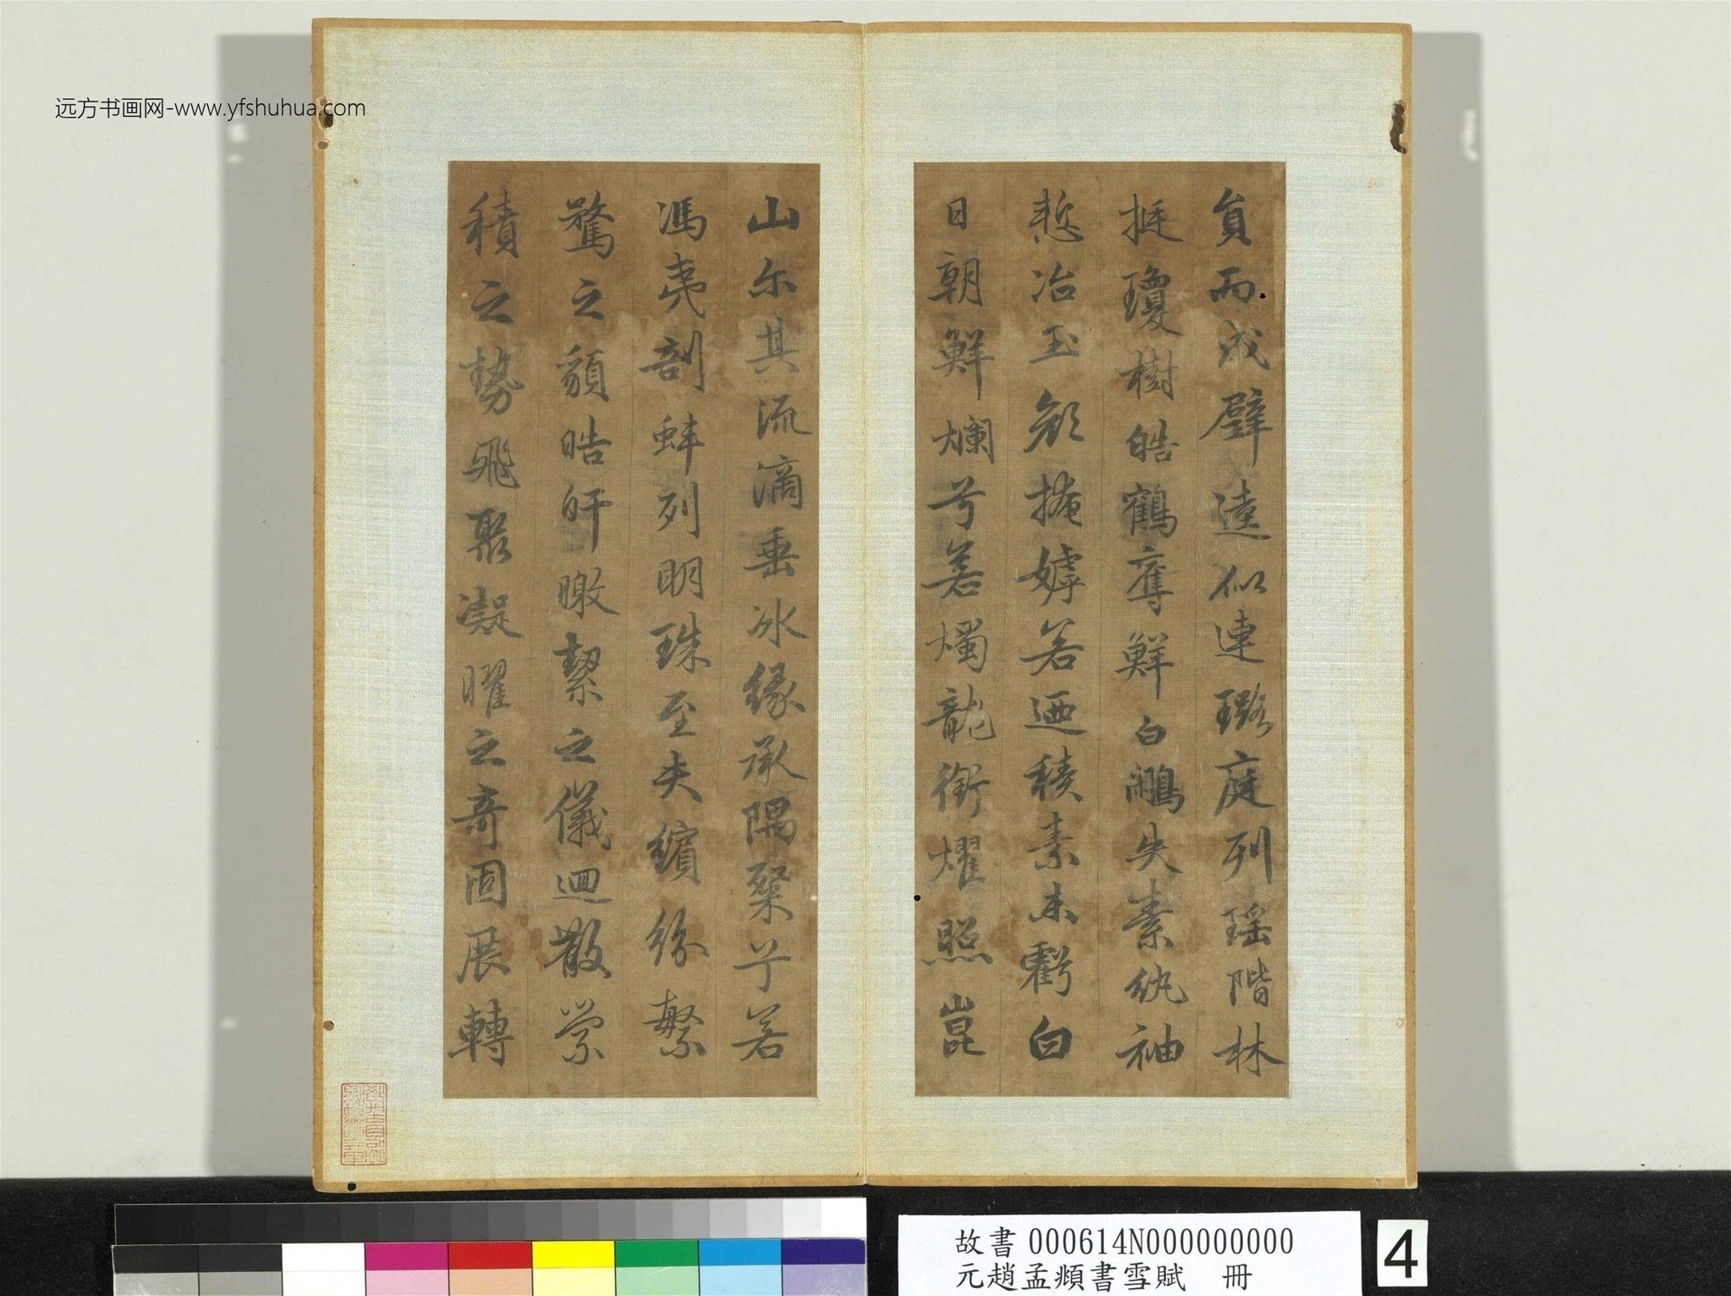 远方书画网-www.yfshuhua.com
員而成璧逵似連璐庭列瑶階林
挺瓊樹皓鶴奪鮮白鷳失素紈袖
慙冶玉顏掩嫭若迺積素未虧白
日朝鮮爛兮若燭龍銜燿照崑
山尔其流滴垂冰緣承隅粲兮若
馮夷剖蚌列明珠至夫繽紛繁
騖之貌晧皯曒絜之儀迴散縈
積之勢飛聚凝曜之奇固展轉
故書 000614N000000000
元趙孟頫書雪賦 冊
4